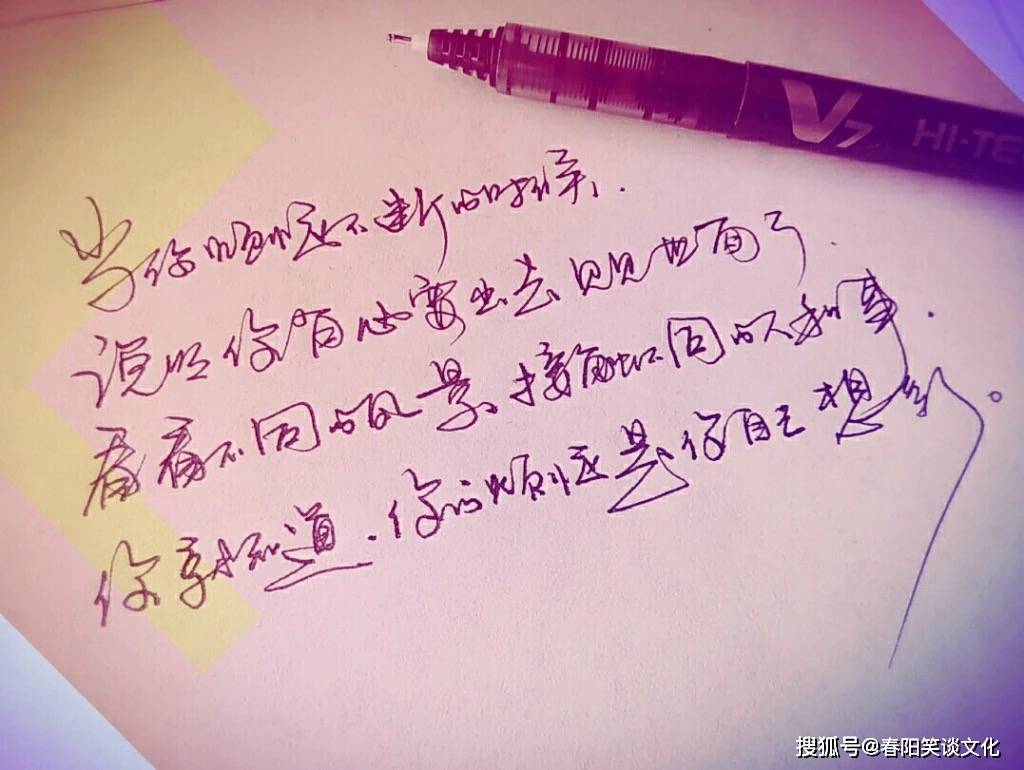 V7 HI-TE
当你烦恼不断的时候,
说明你有必要出去见见世面了.
看看不同的风景,接触不同的人和事.
你就知道.你的烦恼是你自己想多了。
搜狐号@春阳笑谈文化